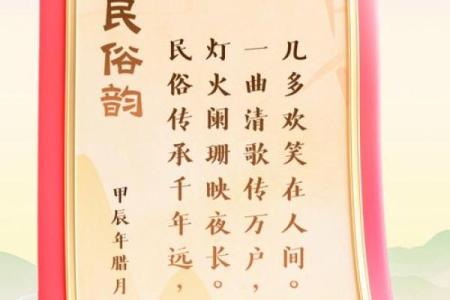 民俗韵
甲辰年腊月
民俗传承千年远，
灯火阑珊映夜长。
一曲清歌传万户，
几多欢笑在人间。